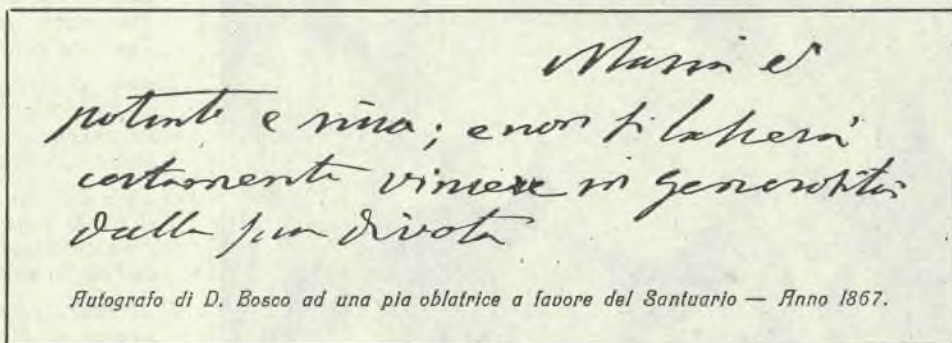 Maria è
potente e ricca; e non si lascierà
certamente vincere in generosità
dalla sua divota
Autografo di D. Bosco ad una pia oblatrice a favore del Santuario — Anno 1867.